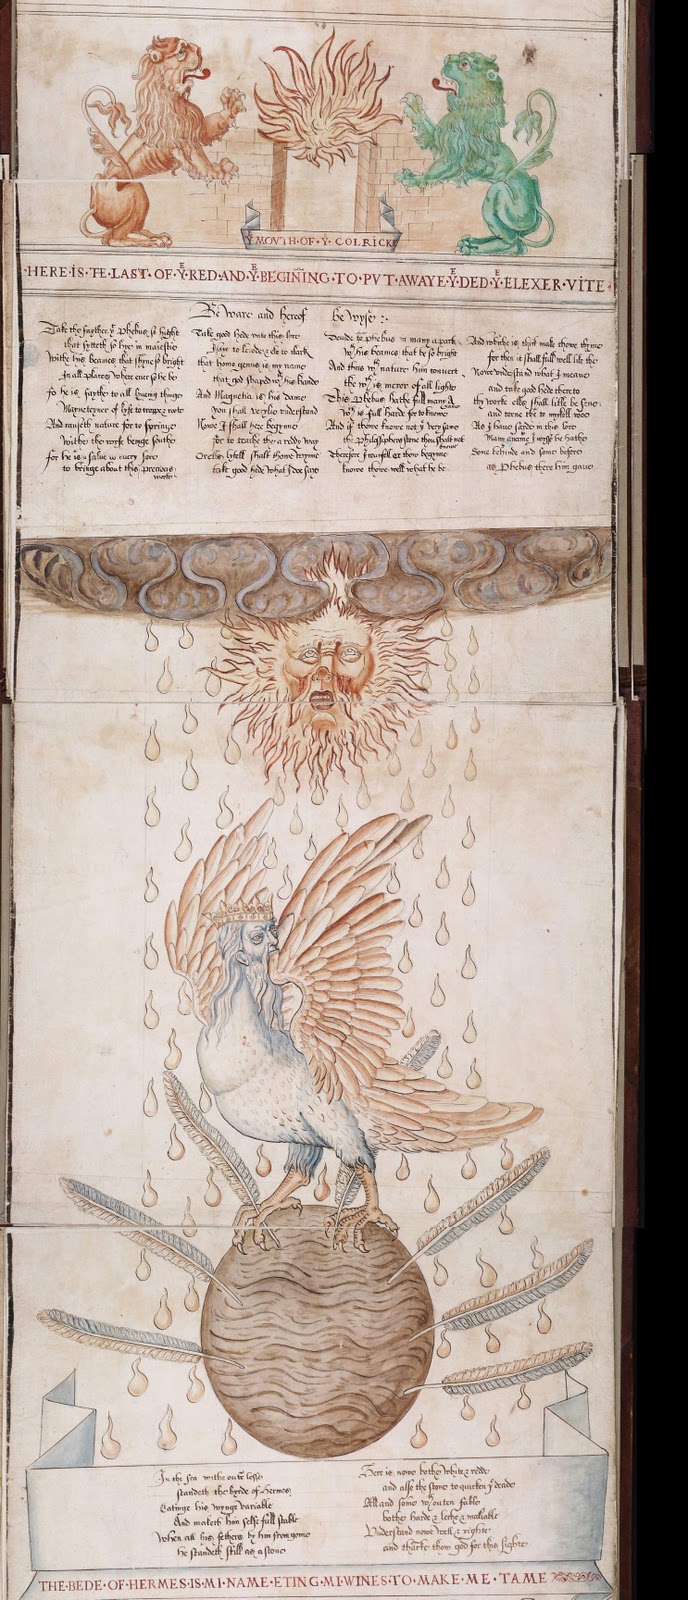 Yͤ MOVTH·OF·Yͤ COLRICK
·HERE·IS·TE·LAST·OF·Yͤ·RED·AND·Yͤ·BEGINING·TO·PVT·AWAYE·Yͤ·DED·Yͤ·ELEXER·VITE·
Be ware and hereof be wyse
Take the father yͭ Phebus so hight
that sytteth so hye in maiestie
Withe his beames that shyne so bright
In all places wher ever so he be
fo he is father to all lyving thinge
Mayntener of lyfe to croppe & roote
And causeth nature for to springe
Withe the wyfe beinge sothe
for he is a salve to every sore
to bringe about this precious
worke
Take good hede unto this lore
I say to lerde & eke to clark
that homogenie is my name
that god shaped wͭ his hande
And Magnetia is his dame
you shall verylie understand
Nowe I shall here begynne
for to teache the a redy way
Or els lytell shalt thow wynne
take good hede what I doe say
Devide to phebus in many a parte
wͭ his beames that be so bright
And thus wͭ nature him convert
the wͨ is meror of all light
This Phebus hathe full many a
wͨ is full harde for to knowe
And if thowe knowe not yͤ very same
the philosiphers stone thou shalt not
knowe
Therfore I counsell er thow begynne
knowe thowe well what he be
And whiche is that make thowe thynne
for this it shall full well like the
Nowe understand what I meane
and take good hede therto
thy worke els shall litle be sene
and torne the to mykell woe
As I have sayde in this lore
Many a name I wysse he hathe
Some behinde and some before
as Phebus there him gave
In the sea withe outͭ lesse
standeth the byrde of Hermes
Eatinge his wynge variable
And maketh him selfe full stable
When all his fethers by him from gonne
he standeth still as a stone
Here is nowe bothe white & redde
and also the stone to quicken yͤ deade
All and some wͭ outen fable
bothe harde & lethe & maliable
Understand nowe well & righte
and thanke thow god for this sighte
THE·BEDE·OF·HERMES·IS·MI·NAME·ETING·MI·WINES·TO·MAKE·ME·TAME